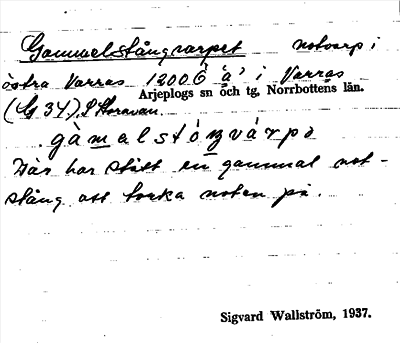 Gammelstångvarpet notvarp i
östra Varras 1200 Ö 'a' i Varras
Arjeplogs sn och tg, Norrbottens län.
(G 34). I Storavan.
gàmelstóŋvárpə
Där har stått en gammal not-
stång att torka noten på.
Sigvard Wallström, 1937.